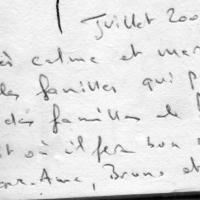 Juillet 200
calme et mer
les familles qui p
des familles de
où il fer bon
Anne, Bruno et